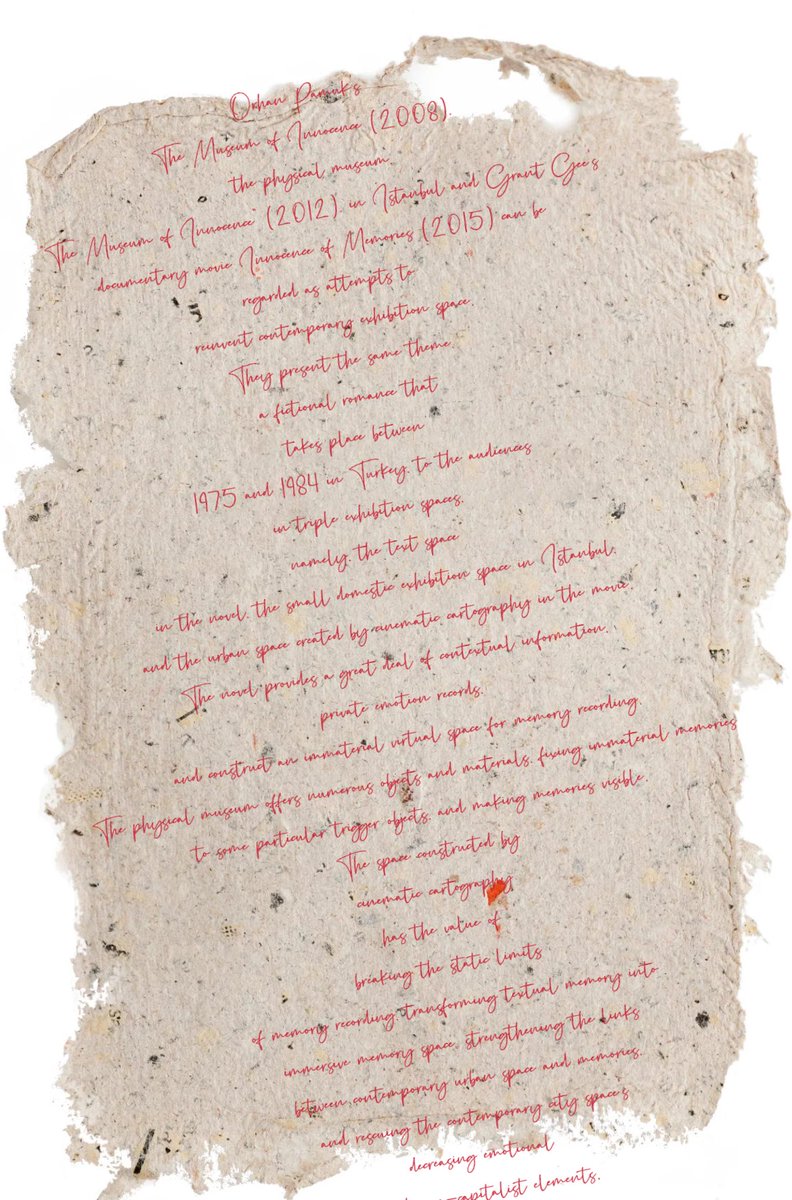 Orhan Pamuk's
The Museum of Innocence (2008),
the physical museum,
The Museum of Innocence (2012) in Istanbul and Grant Gee's
documentary movie Innocence of Memories (2015) can be
regarded as attempts to
reinvent contemporary exhibition space.
They present the same theme,
a fictional romance that
takes place between
1975 and 1984 in Turkey, to the audiences
in triple exhibition spaces,
namely, the text space
in the novel, the small domestic exhibition space in Istanbul,
and the urban space created by cinematic cartography in the movie.
The novel provides a great deal of contextual information,
private emotion records,
and construct an immaterial virtual space for memory recording.
The physical museum offers numerous objects and materials, fixing immaterial memories
to some particular trigger objects, and making memories visible.
The space constructed by
cinematic cartography
has the value of
breaking the static limits
of memory recording, transforming textual memory into
immersive memory space, strengthening the links
between contemporary urban space and memories,
and rescuing the contemporary city space's
decreasing emotional
capitalist elements.